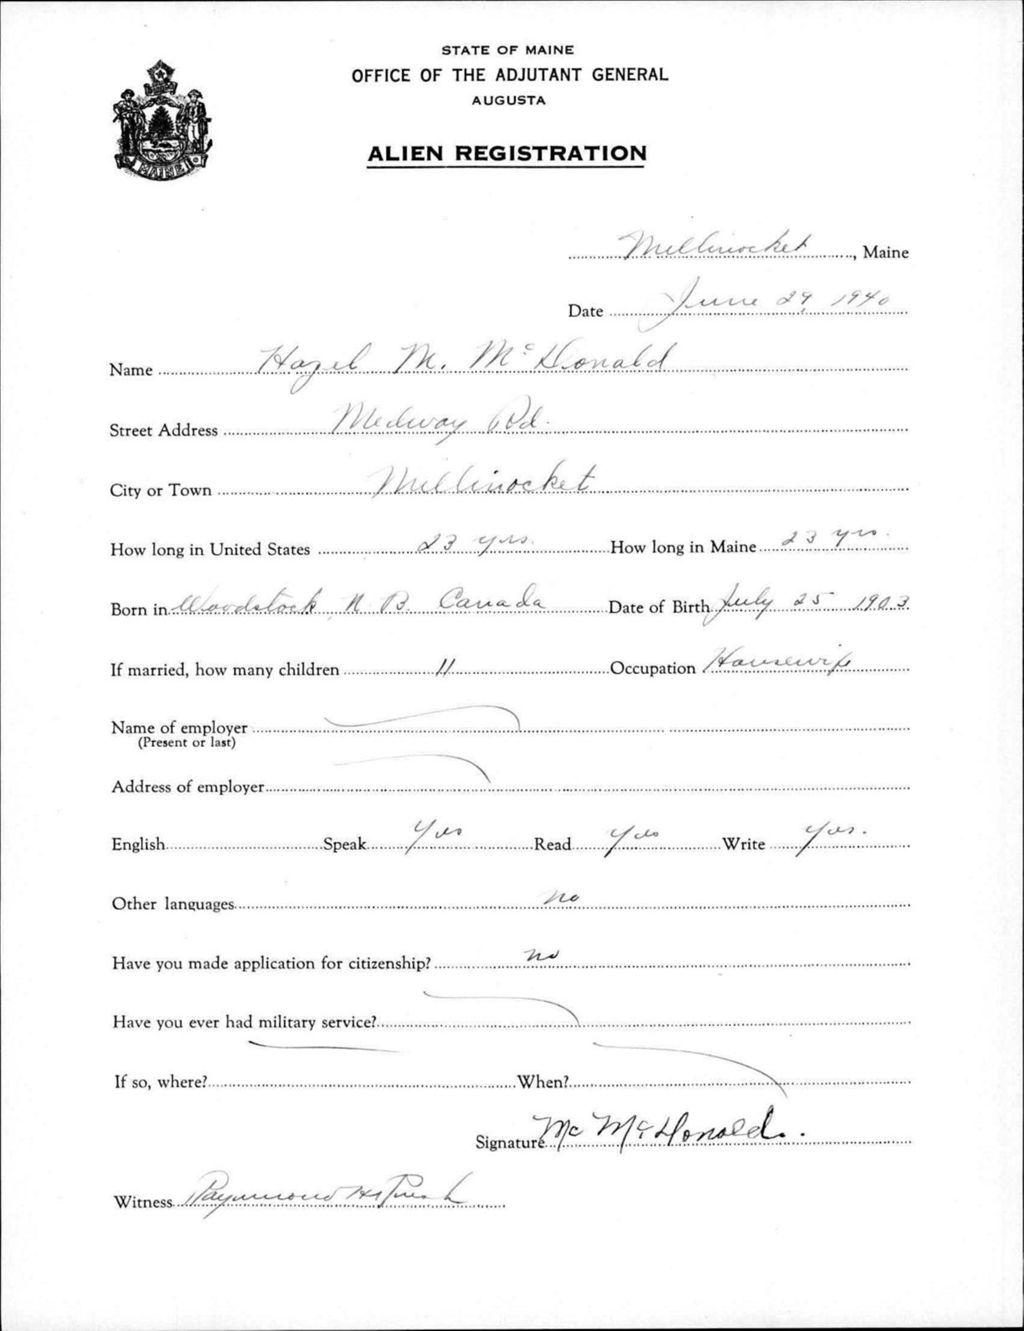 STATE OF MAINE
OFFICE OF THE ADJUTANT GENERAL
AUGUSTA
MAINE
ALIEN REGISTRATION
Millinocket, Maine
Date June 29, 1940
Name Hazel M. McDonald
Street Address Medway Rd.
City or Town Millinocket
How long in United States 23 yrs. How long in Maine 23 yrs.
Born in Woodstock N. B. Canada Date of Birth July 25 1903
If married, how many children 11 Occupation Housewife
Name of employer
(Present or last)
Address of employer
English Speak Yes Read Yes Write Yes.
Other languages no
Have you made application for citizenship? no
Have you ever had military service?
If so, where? When?
Signature McDonald.
Witness Raymond